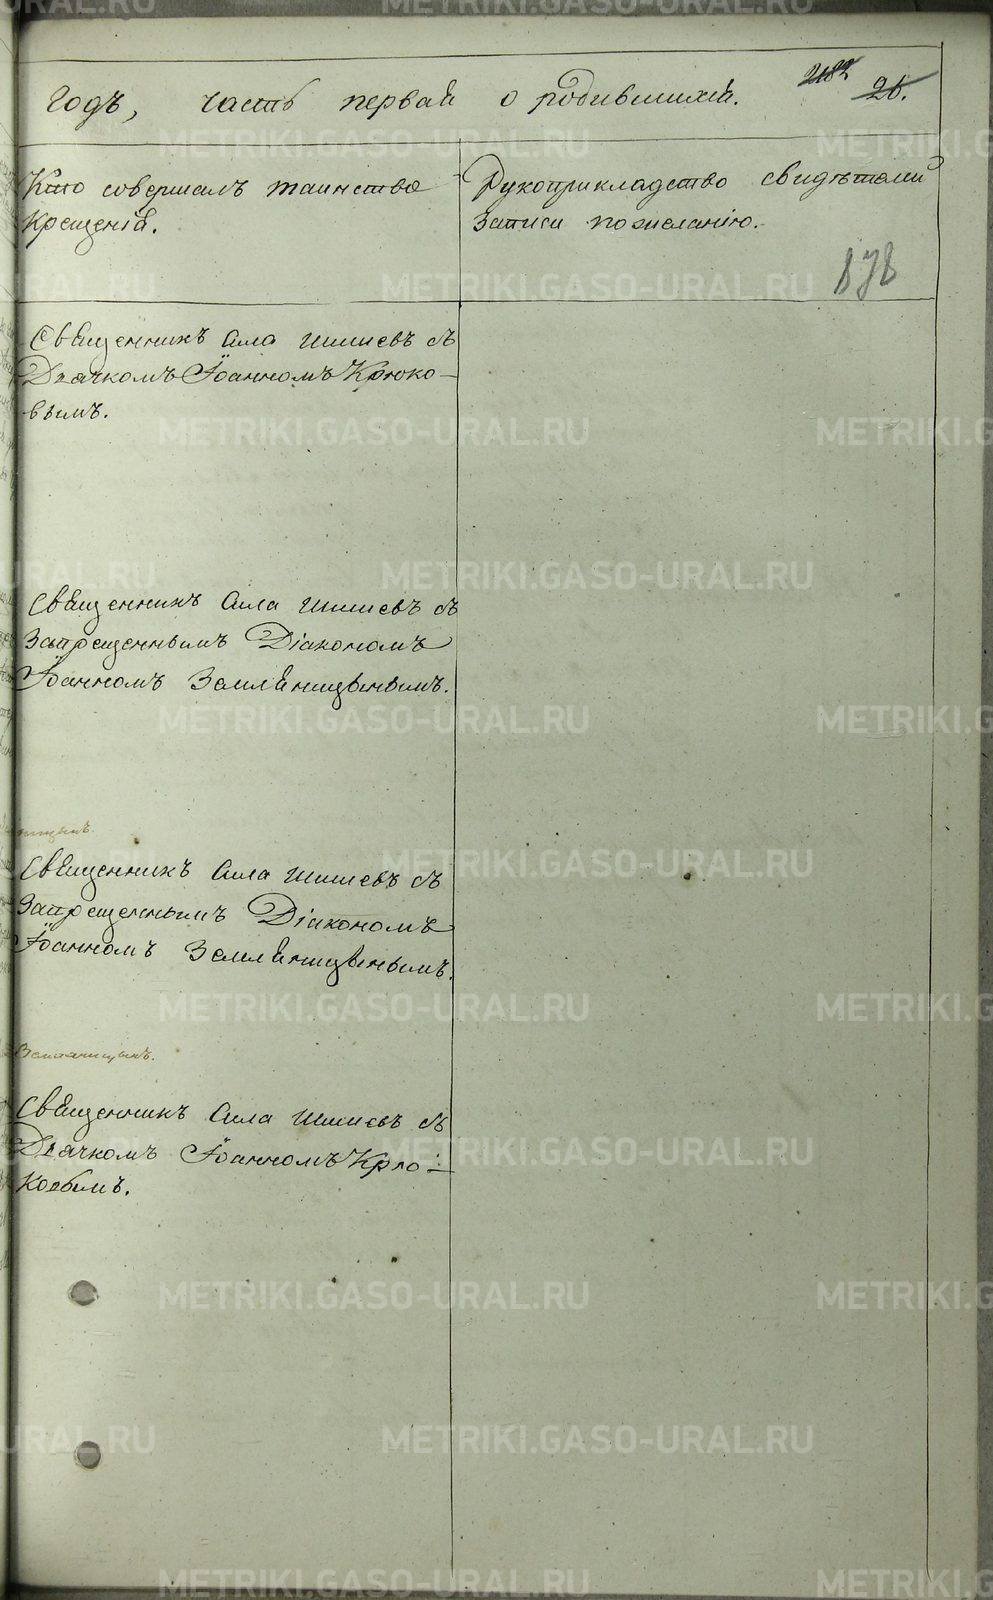 годъ, часть первая о родившихся.
2182 26.
Кто совершалъ таинство
крещенія.
Рукоприкладство свидѣтелей
записи по желанію.
878
Священникъ Сила Шишевъ съ
Дьячкомъ Іоанномъ Крюко-
вымъ.
Священникъ Сила Шишевъ съ
Запрещеннымъ Діакономъ
Іоанномъ Земляницынымъ.
Священникъ Сила Шишевъ съ
Запрещеннымъ Діакономъ
Іоанномъ Земляницынымъ.
Земляницынъ.
Священникъ Сила Шишевъ съ
Дьячкомъ Іоанномъ Крю-
ковымъ.
METRIKI.GASO-URAL.RU